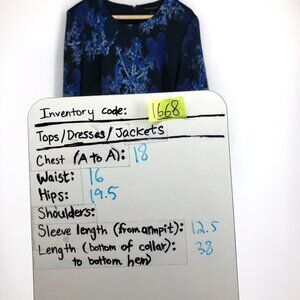 Inventory code: 1668
Tops/Dresses/Jackets
Chest (A to A): 18
Waist: 16
Hips: 19.5
Shoulders:
Sleeve length (from armpit): 12.5
Length (bottom of collar): 38
to bottom hem)